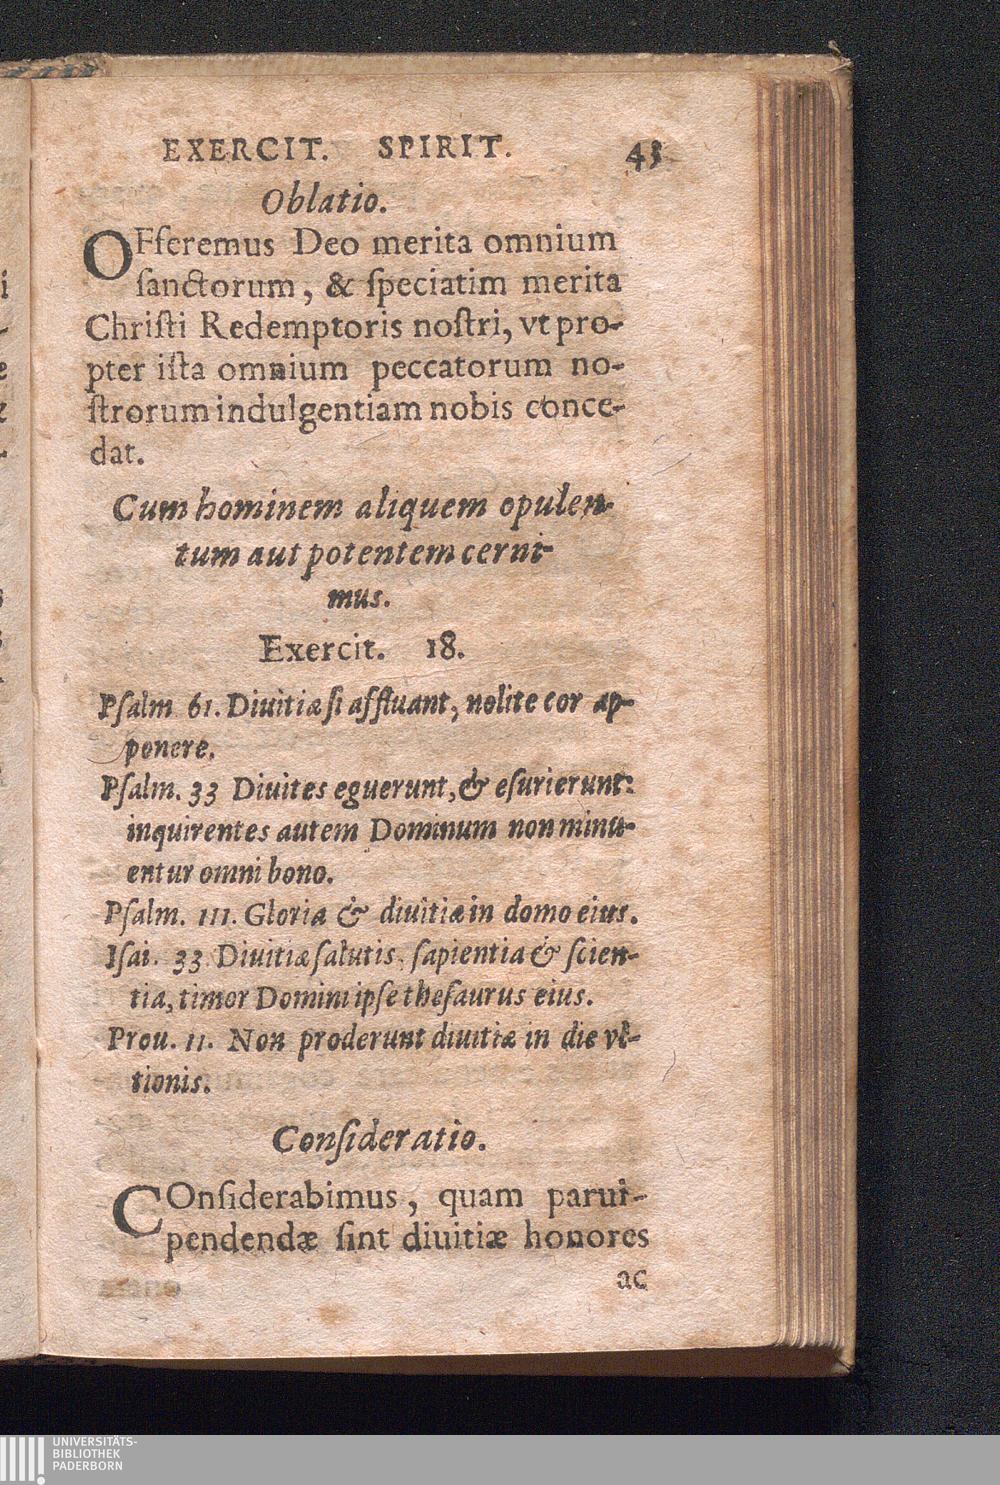 EXERCIT. SPIRIT. 43
Oblatio.
OFferemus Deo merita omnium
ſanctorum, & ſpeciatim merita
Chriſti Redemptoris noſtri, vt pro-
pter iſta omnium peccatorum no-
ſtrorum indulgentiam nobis conce-
dat.
Cum hominem aliquem opulen-
tum aut potentem cerni-
mus.
Exercit. 18.
Pſalm 61. Diuitiæ ſi affluant, nolite cor ap-
ponere.
Pſalm. 33 Diuites eguerunt, & eſurierunt:
inquirentes autem Dominum non minu-
entur omni bono.
Pſalm. 111. Gloria & diuitiæ in domo eius.
Iſai. 33 Diuitiæ ſalutis, ſapientia & ſcien-
tia, timor Domini ipſe theſaurus eius.
Prou. 11. Non proderunt diuitiæ in die vl-
tionis.
Conſideratio.
COnſiderabimus, quam parui-
pendendæ ſint diuitiæ honores
ac
UNIVERSITÄTS-
BIBLIOTHEK
PADERBORN